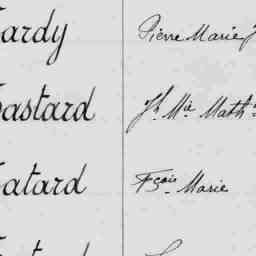 ardy Pierre Marie
astard Jh Mie Math
atard Fçois Marie